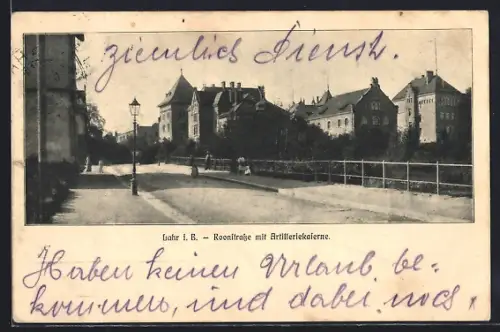 ziemlich Dienst.
Lahr i. B. – Roonstraße mit Artilleriekaserne.
Haben keinen Urlaub be-
kommen, und dabei noch